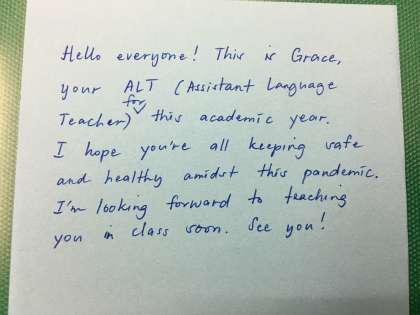 Hello everyone! This is Grace,
your ALT (Assistant Language
Teacher) for this academic year.
I hope you're all keeping safe
and healthy amidst this pandemic.
I'm looking forward to teaching
you in class soon. See you!